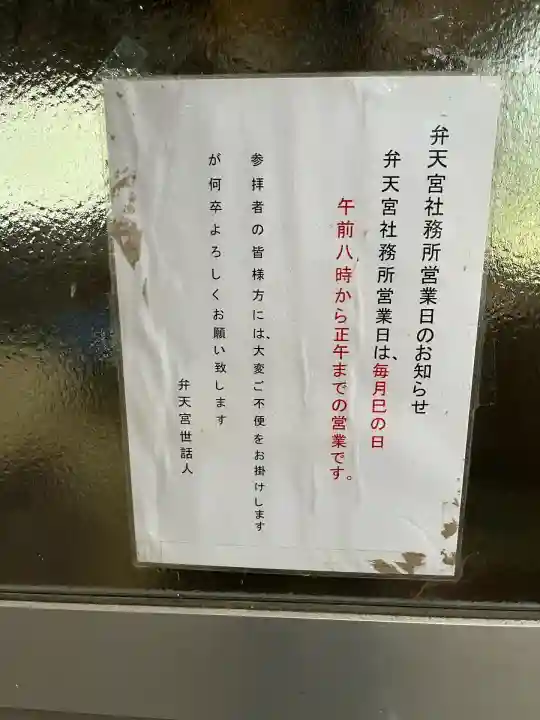 弁天宮社務所営業日のお知らせ
弁天宮社務所営業日は、毎月巳の日
午前八時から正午までの営業です。
参拝者の皆様方には、大変ご不便をお掛けします
が何卒よろしくお願い致します
弁天宮世話人